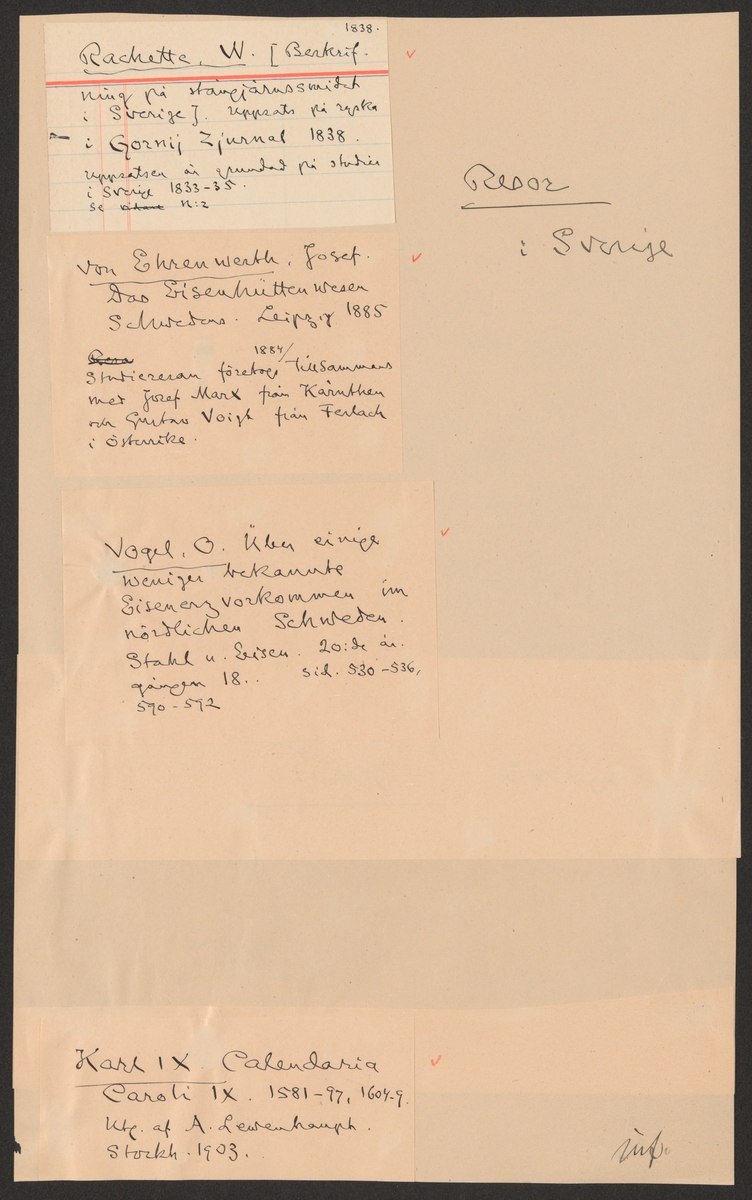 1838.
Rachette, W. [Beskrif-
ning på stångjärnssmidet
i Sverige]. Uppsats på ryska
i Gornij Zjurnal 1838.
Uppsatsen är grundad på studier
i Sverige 1833-35.
Se N:2
von Ehrenwerth, Josef.
Das Eisenhüttenwesen
Schwedens. Leipzig 1885
Resa
1884/
Studieresan företogs tillsammans
med Josef Marx från Kärnthen
och Gustav Voigt från Ferlach
i Österrike.
Vogel, O. Über einige
weniger bekannte
Eisenerzvorkommen im
nördlichen Schweden.
Stahl u. Eisen. 20:de år-
gången 18.. sid. 530-536,
590-592
Karl IX. Calendaria
Caroli IX. 1581-97, 1604-9.
Utg. af A. Lewenhaupt.
Stockh. 1903.
Resor
i Sverige